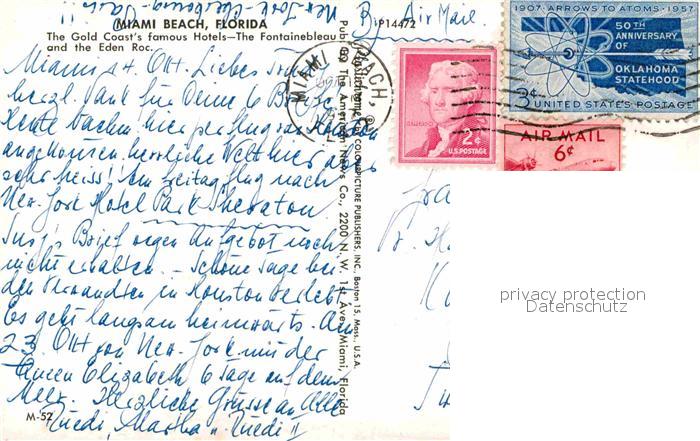 New York - Cherbourg-
Paris!!
MIAMI BEACH, FLORIDA
The Gold Coast's famous Hotels—The Fontainebleau
and the Eden Roc.
Miami 14. Okt. Liebes
herzl. Dank für Deine l. Briefe
Heute haben hier per flug von Houston
angekommen. herrliche Welt hier aber
sehr heiss! Am freitag flug nach
New-York Hotel Park Sheraton
Brief wegen Aufgebot noch
nicht erhalten. - Schöne Tage bei
den Verwandten in Houston verlebt
Es geht langsam heimwärts. Am
23. Okt von New-York mit der
Queen Elizabeth 6 Tage auf dem
Meer. Herzliche Grüsse an Alle
Ruedi, Martha u. Ruedi II
M-52
Pub. by The American News Co., 2200 N. W. 1st Ave., Miami, Florida
COLOURPICTURE PUBLISHERS, INC., Boston 15, Mass., U.S.A.
By Air Mail.
P14472
MIAMI BEACH,
2¢
U.S. POSTAGE
1907·ARROWS TO ATOMS·1957
50TH
ANNIVERSARY
OF
OKLAHOMA
STATEHOOD
3¢
UNITED STATES POSTAGE
AIR MAIL
6¢
privacy protection
Datenschutz